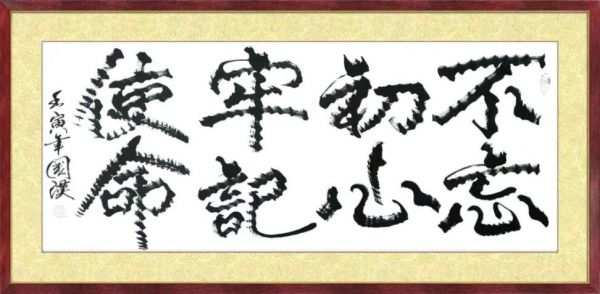 不忘
初心
牢记
使命
壬寅年國漢